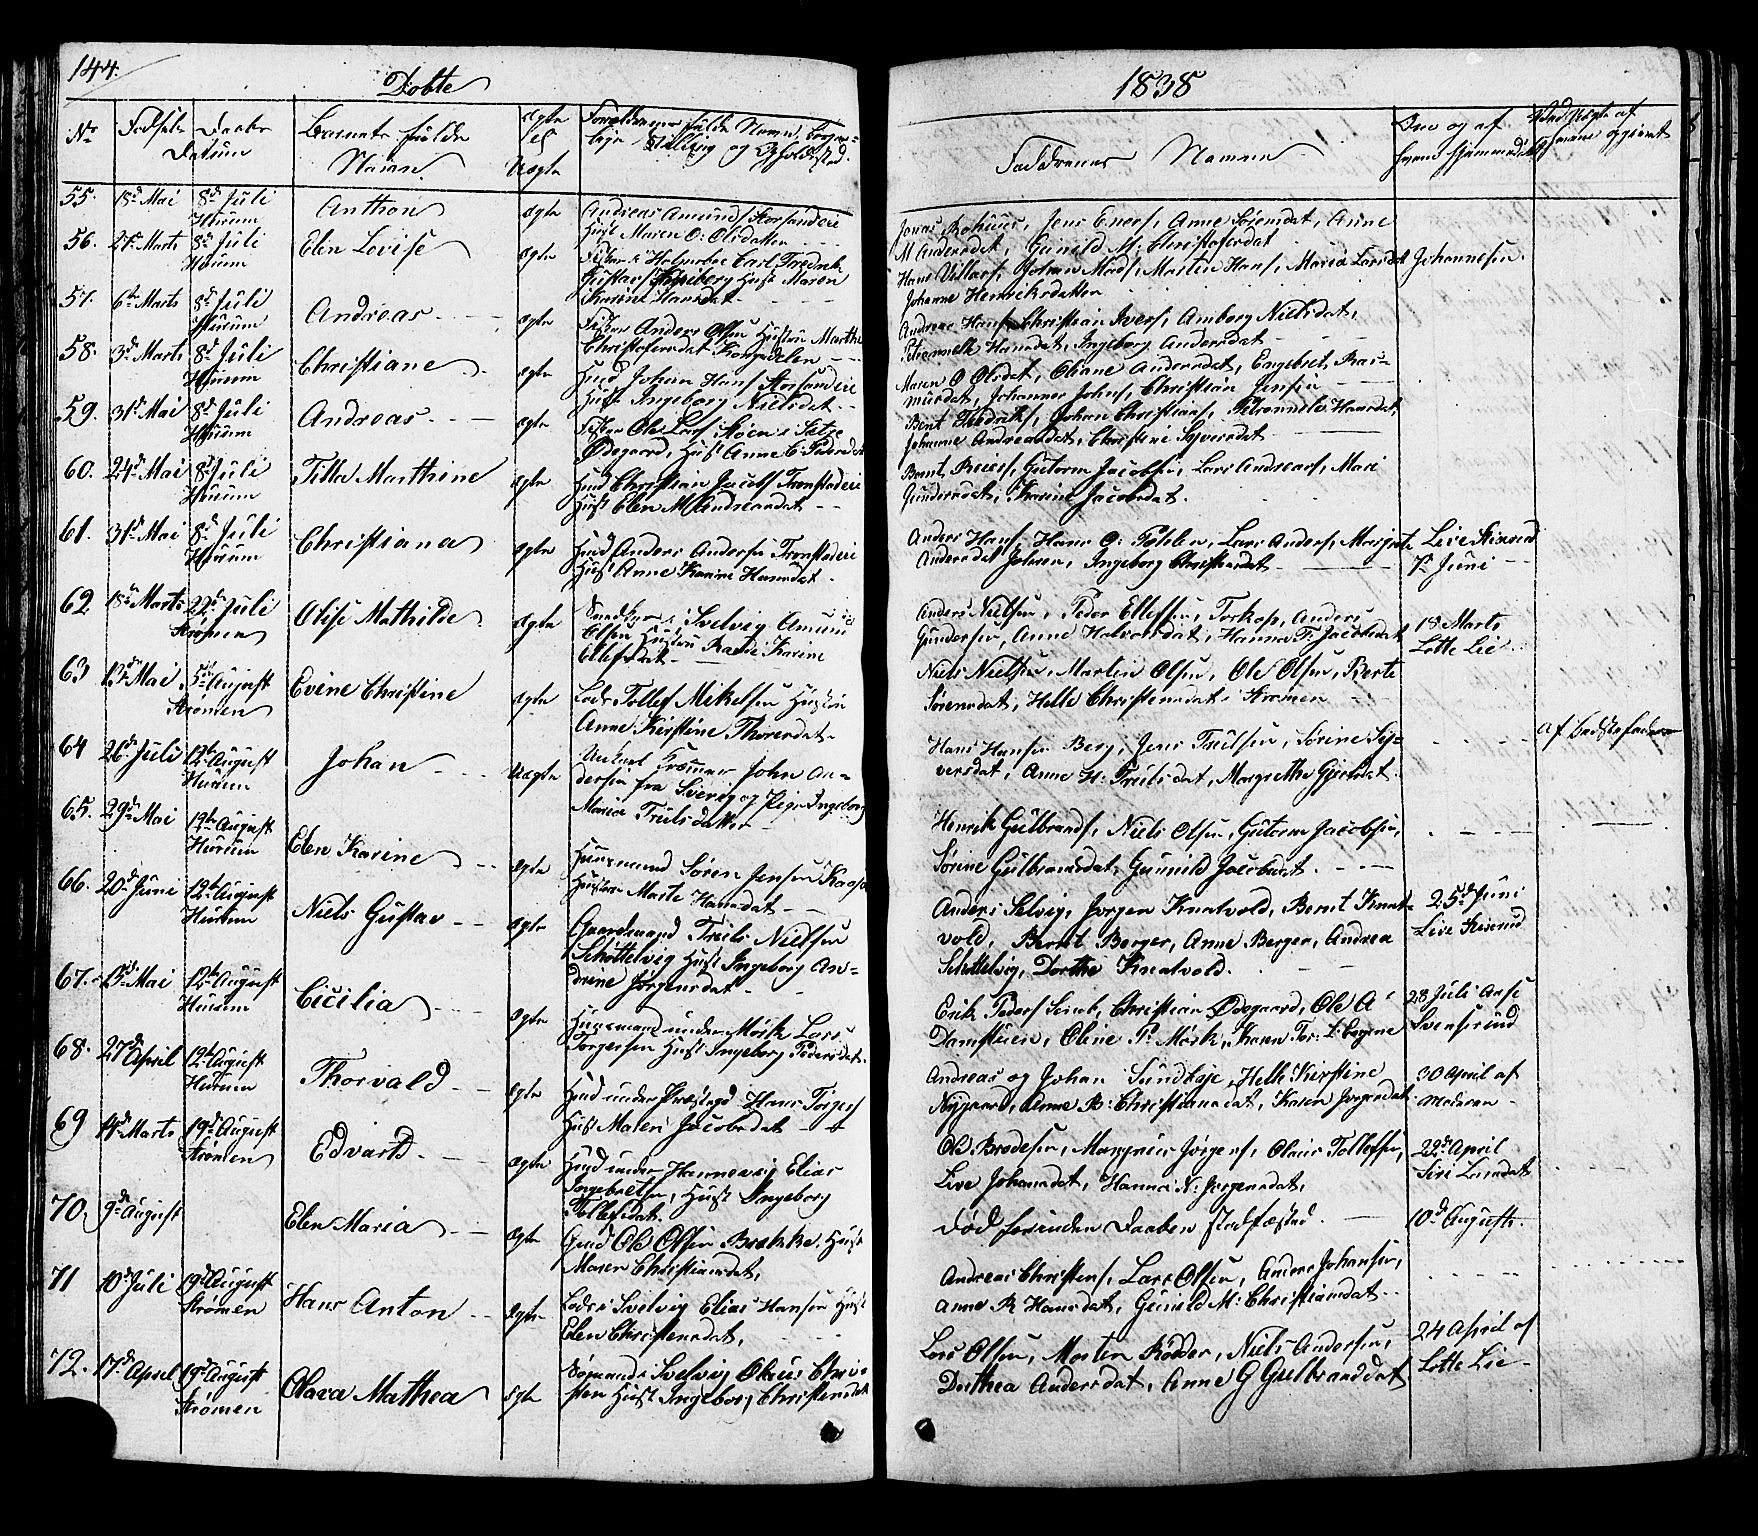 144.
Døbte
1838
No
Fødsels
Daabs
Datum
Barnets fulde
Navn
Ægte
el
Uægte
Forældrenes fulde Navn, Borger=
lige Stilling og Opholdssted.
Faddernes Navne
og af
55. 18de Mai 8de Juli
Hurum
Anthon
ægte
Andreas Amunds Storsanderie
Hust Maren O: Olsdatter
Jens Eners, Anne Sørensdat, Anne
M Andersdat, Gunild M: Christofersdat
56. 21de Marts 8de Juli
Hurum
Elen Lovise
ægte
Fisker i Holmsboe Carl Fredrik
Gustavs Hust Maren
Karine Hansdat
Johan Mads, Morten Hans, Maria Larsdat Johannesen
Johanne Henriksdatter
57. 6te Marts 8de Juli
Hurum
Andreas
ægte
Fisker Anders Olsen Hustru Marthe
Christofersdat Kongsdelen
Andreas Hans Christian Ivers, Amborg Nielsdat,
Petronelle Hansdat, Ingeborg Andersdat
58. 3de Marts 8de Juli
Hurum
Christiane
ægte
Huusmd Johan Hans Storsanderie
Hust Ingeborg Nielsdat
Maren O Olsdat, Oliane Andersdat, Engebret Ras=
musdat, Johannes Johns, Christian Jensen
59. 31de Mai 8de Juli
Hurum
Andreas
ægte
Fisker Ole Lars Støen i Sætre
Ødegaard, Hust Anne C: Pedersdat
Bent Fredriks, Johan Christians, Petronelle Hansdat,
Johanne Andreasdat, Christine Syversdat
60. 24de Mai 8de Juli
Hurum
Tilla Marthine
ægte
Huusmd Christian Jacobs Tronstaderie
Hust Elen M Andreasdat
Bernt Reiers, Gutorm Jacobsen, Lars Andreas, Mari
Gundersdat, Karine Jacobsdat.
61. 31de Mai 8de Juli
Hurum
Christiana
ægte
Huusmd Anders Andersen Tronstaderie
Hust Anne Karine Hansdat
Anders Hans, Hans O: Lars Anders, Margrete
Andersdat Ingeborg Christiansdat
7de Juni
62 18de Marts 22de Juli
Strømen
Olise Mathilde
ægte
i Svelvig Amund
Olsen Hustru Karine
Ellefsdat
Anders Nielsen, Peder Ellefsen, Torkop, Anders
Gundersen, Anne Halvorsdat, Hanna F. Jacobsdat
18 Marts
Lotte Lie
63 13de Mai 5te August
Strømen
Evine Christine
ægte
Lods Tollef Mikelsen Hustru
Anne Kirstine Thoresdat
Niels Nielsen, Martin Olsen, Ole Olsen, Berte
Sørensdat, Helle Christensdat i Strømen
64 26de Juli 12te August
Hurum
Johan
Uægte
John An=
dersen fra Sverig og Pige Ingeborg
Maria Trulsdatter
Hans Hansen Berg, Jens Trulsen, Sørine Sy=
versdat, Anne H: Trulsdat, Margrethe
65. 29de Mai 12te August
Hurum
Elen Karine
ægte
Huusmand Søren Jensen Kaasa
Hustru Marte Hansdat
Henrik Gulbrands, Niels Olsen, Gutorm Jacobsen,
Sørine Gulbransdat, Gunild Jacobsdat.
66. 20de Juni 12te August
Hurum
Niels Gustav
ægte
Gaardmand Truls Nielsen
Schøttelvig Hust Ingeborg An=
drine Jørgensdat
Anders Selvig, Jørgen Knatvold, Bernt Knat=
vold, Bernt Berger, Anne Berger, Andrea
Schøttelvig, Dorthe Knatvold.
25de Juni
67. 12te August
Hurum
Cicilia
ægte
Huusmand under Mørk Lars
Torgersen Hust Ingeborg Pedersdat.
Erik Peders Christian Ødegaard, Ole A
Oline P. Mørk, Karen
28 Juli
68. 27de April 12te August
Hurum
Thorvald
ægte
Huusmd under Præstegd Hans Torgers
Hust Maleri Jacobsdat
Andreas og Johan Helle Kirstine
Nygaard, Anne B: Christiansdat, Karen Jørgensdat
30 April af
Moderen
69 14de Marts 19de August
Strømen
Edvard
ægte
Huusmd under Hannevig Elias
Ingebretsen, Hust Ingeborg
Tollefsdat.
Magnus Jørgens, Olaus Tollefsen,
Live Johansdat, Hanna N. Jørgensdat,
22de April
Siri Larsdat
70. 9de August
Elen Maria
ægte
Ole Olsen Brekke, Hust
Maren Christiansdat,
Død forinden Daaben stadfæsted.
10de August.
71 10de Juli 19de August
Strømen
Hans Anton
ægte
Lods i Svelvig Elias Hansen Hust
Elen Christensdat,
Andreas Christens, Lars Olsen, Anders Johansen,
Anne R Hansdat, Gunild M: Christiansdat
72. 17de April 19de August
Strømen
Olava Mathea
ægte
Sømand i Svelvig Olaus Chris=
ten Hust Ingeborg Christensdat
Lars Olsen, Morten Rødder, Niels Andersen,
Dorthea Andersdat, Anne G Gulbrandsdat
24 April af
Lotte Lie